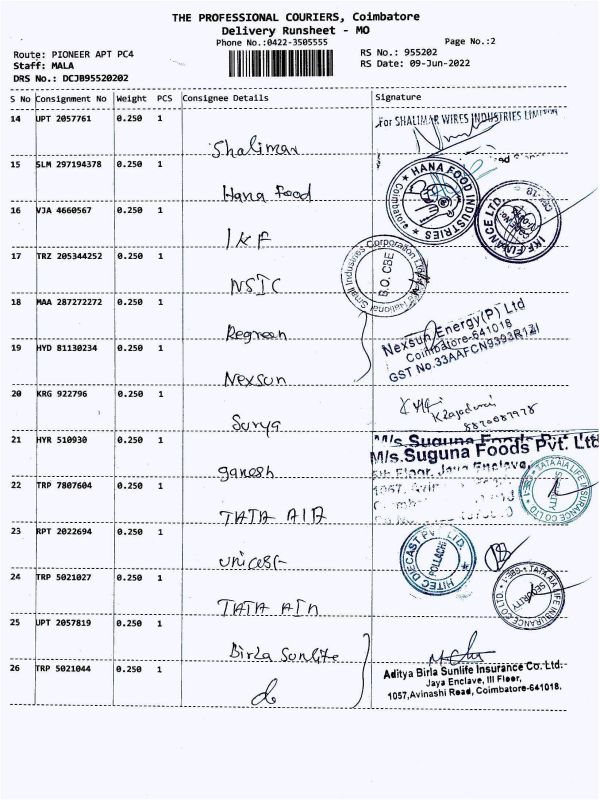 THE PROFESSIONAL COURIERS, Coimbatore
Delivery Runsheet - MO
Phone No.:0422-3505555
Page No.:2
Route: PIONEER APT PC4
RS No.: 955202
Staff: MALA
RS Date: 09-Jun-2022
DRS No.: DCJB95520202
S No Consignment No Weight PCS Consignee Details Signature
14 UPT 2057761 0.250 1
For SHALIMAR WIRES INDUSTRIES LIMITED
Shalimar
15 SLM 297194378 0.250 1
HANA FOOD INDUSTRIES
Coimbatore
Hana Food
16 VJA 4660567 0.250 1
IKF FINANCE LTD.
IKF
17 TRZ 205344252 0.250 1
National Small Industries Corporation Ltd
B.O. CBE
NSIC
18 MAA 287272272 0.250 1
Regreen
Nexsun Energy(P) Ltd
Coimbatore-641018
GST No.33AAFCN9393R1ZI
19 HYD 81130234 0.250 1
Nexsun
20 KRG 922796 0.250 1
Surya
21 HYR 510930 0.250 1
M/s.Suguna Foods Pvt. Ltd
M/s.Suguna Foods Pvt. Ltd
5th Floor, Jaya Enclave,
1057, Avin
ganesh
22 TRP 7807604 0.250 1
TATA AIA LIFE INSURANCE CO LTD
SECURITY
TATA AIA
23 RPT 2022694 0.250 1
HITEC DIECAST PVT. LTD.
POLLACHI
unicast
24 TRP 5021027 0.250 1
TATA AIA LIFE INSURANCE CO LTD
SECURITY
TATA AIA
25 UPT 2057819 0.250 1
Birla Sunlife
26 TRP 5021044 0.250 1
Aditya Birla Sunlife Insurance Co. Ltd.
Jaya Enclave, III Floor,
1057,Avinashi Road, Coimbatore-641018.
do